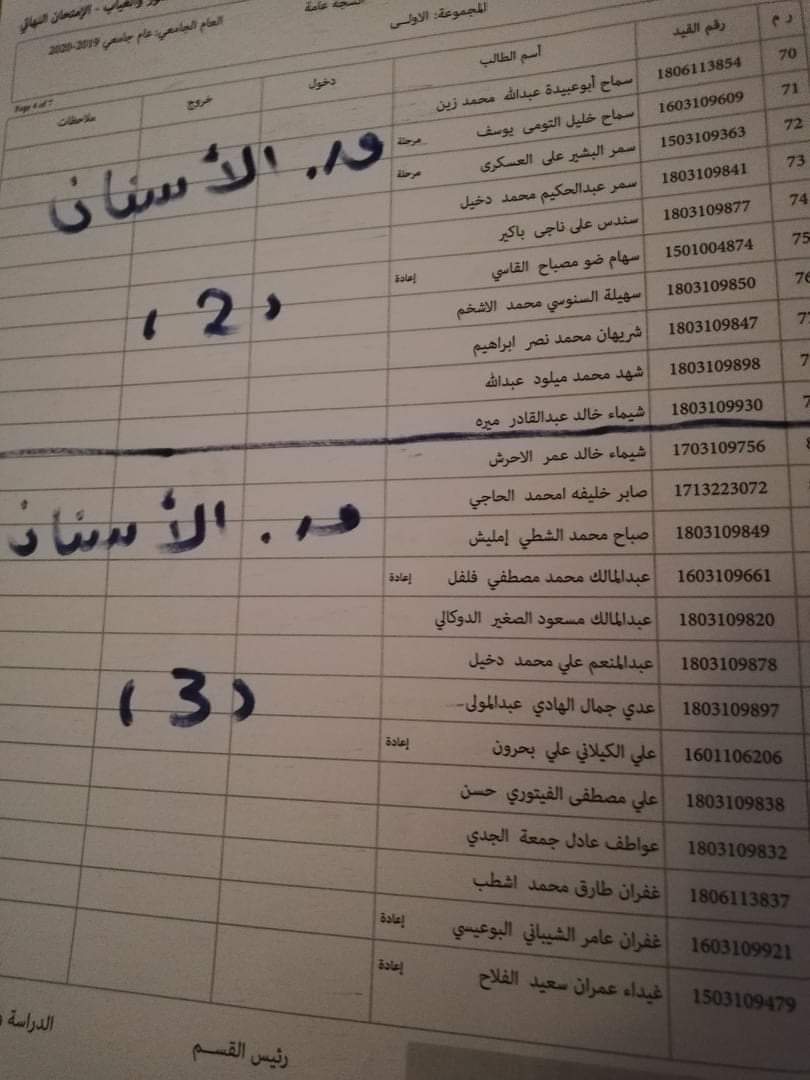 والغياب - الإمتحان النهائي
العام الجامعي: عام جامعي 2019-2020
عامة
المجموعة: الاولى
Page 4 of 7
ر م رقم القيد أسم الطالب دخول خروج ملاحظات
70 1806113854 سماح أبوعبيدة عبدالله محمد زين
71 1603109609 سماح خليل التومى يوسف مرحلة
72 1503109363 سمر البشير على العسكرى مرحلة
73 1803109841 سمر عبدالحكيم محمد دخيل
74 1803109877 سندس على ناجى باكير
75 1501004874 سهام ضو مصباح القاسي إعادة
76 1803109850 سهيلة السنوسي محمد الاشخم
1803109847 شريهان محمد نصر ابراهيم
1803109898 شهد محمد ميلود عبدالله
1803109930 شيماء خالد عبدالقادر ميره
و. الأسنان
(2)
1703109756 شيماء خالد عمر الاحرش
1713223072 صابر خليفه امحمد الحاجي
1803109849 صباح محمد الشطي إمليش
1603109661 عبدالمالك محمد مصطفي فلفل إعادة
1803109820 عبدالمالك مسعود الصغير الدوكالي
1803109878 عبدالمنعم علي محمد دخيل
1803109897 عدي جمال الهادي عبدالمولى
1601106206 علي الكيلاني علي بحرون إعادة
1803109838 علي مصطفى الفيتوري حسن
1803109832 عواطف عادل جمعة الجدي
1806113837 غفران طارق محمد اشطب
1603109921 غفران عامر الشيباني البوعيسي إعادة
1503109479 غيداء عمران سعيد الفلاح إعادة
و. الأسنان
(3)
رئيس القسم
الدراسة